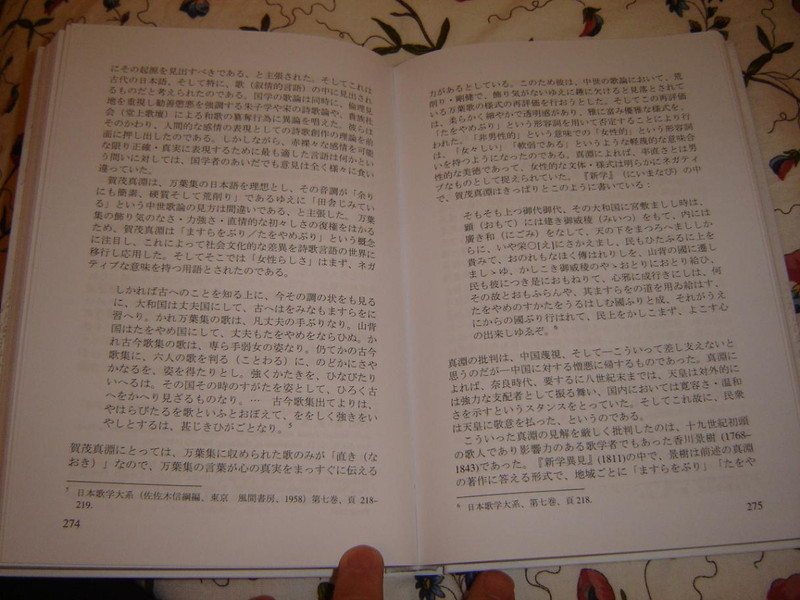 にその起源を見出すべきである、と主張された。そしてこれは
古代の日本語、そして特に、歌（叙情的言語）の中に見出され
るものだと考えられたのである。国学の歌論は同時に、倫理見
地を重視し勧善懲悪を強調する朱子学や宋の詩歌論や、貴族社
会（堂上歌壇）による和歌の簒奪行為に異論を唱えた。彼らは
そのかわり、人間的な感情の表現としての詩歌創作の理論を前
面に押し出したのである。しかしながら、赤裸々な感情を可能
な限り正確・真実に表現するために最も適した言語は何かとい
う問いに対しては、国学者のあいだでも意見は全く様々に食い
違っていた。
賀茂真淵は、万葉集の日本語を理想とし、その音調が「余り
にも簡素、硬質そして荒削り」であるゆえに「田舎じみてい
る」という中世歌論の見方は間違いである、と主張した。万葉
集の飾り気のなさ・力強さ・直情的な初々しさの復権をはかる
ため、賀茂真淵は「ますらをぶり／たをやめぶり」という概念
に注目し、これによって社会文化的な差異を詩歌言語の世界に
移行し応用した。そしてそこでは「女性らしさ」はまず、ネガ
ティブな意味を持つ用語とされたのである。
しかれば古へのことを知る上に、今その調の状をも見る
に、大和国は丈夫国にして、古へはをみなもますらをに
習へり。かれ万葉集の歌は、凡丈夫の手ぶりなり。山背
国はたをやめ国にして、丈夫もたをやめをならひぬ。か
れ古今歌集の歌は、専ら手弱女の姿なり。仍てかの古今
歌集に、六人の歌を判る（ことわる）に、のどかにさや
かなるを、姿を得たりとし。強くかたきを、ひなびたり
といへるは。その国その時のすがたを姿として、ひろく古
へをかへり見ざるものなり。… 古今歌集出てよりは、
やはらびたるを歌といふとおぼえて、ををしく強きをい
やしとするは、甚じきひがごとなり。5
賀茂真淵にとっては、万葉集に収められた歌のみが「直き（な
おき）」なので、万葉集の言葉が心の真実をまっすぐに伝える
5 日本歌学大系（佐佐木信綱編、東京 風間書房、1958）第七巻、頁 218–
219.
274
力があるとしている。このため彼は、中世の歌論において、荒
削り・剛健で、飾り気がないゆえに趣に欠けると見落とされて
いる万葉歌の様式の再評価を行おうとした。そしてこの再評価
は、柔らかく細やかで透明感があり、雅に富み優雅な様式を、
「たをやめぶり」という形容詞を用いて否定することにより行
われた。「非男性的」という意味での「女性的」という形容詞
は、「女々しい」「軟弱である」というような軽蔑的な意味合
いを持つようになったのである。真淵によれば、率直さとは男
性的な美徳であって、女性的な文体・様式は明らかにネガティ
ブなものとして捉えられていた。『新学』（にいまなび）の中
で、賀茂真淵はきっぱりとこのように書いている：
そもそも上つ御代御代、その大和国に宮敷ましし時は、
顕（おもて）には建き御威稜（みいつ）をもて、内には
廣き和（にごみ）をなして、天の下をまつろへましか
らに、いや栄〇[え]にさかえまし、民もひたぶるに上を
貴みて、おのれもなほく傳はれりしを、山背の國に遷し
ましゝゆ、かしこき御威稜のやゝおとりにおとり給ひ、
民も彼につき是におもねりて、心邪に成行きにしは、何
その故とおもふらんや、其ますらをの道を用ゐ給はず、
たをやめのすがたをうるはしむ國ぶりと成、それがうえ
にからの國ぶり行はれて、民上をかしこまず、よこす心
の出来しゆゑぞ。6
真淵の批判は、中国蔑視、そして―こういって差し支えないと
思うのだが―中国に対する憎悪に帰するものであった。真淵に
よれば、奈良時代、要するに八世紀末までは、天皇は対外的に
は強力な支配者として振る舞い、国内においては寛容さ・温和
さを示すというスタンスをとっていた。そしてこれ故に、民衆
は天皇に敬意を払った、というのである。
こういった真淵の見解を厳しく批判したのは、十九世紀初頭
の歌人であり影響力のある歌学者でもあった香川景樹 (1768–
1843)であった。『新学異見』(1811)の中で、景樹は前述の真淵
の著作に答える形式で、地域ごとに「ますらをぶり」「たをや
6 日本歌学大系、第七巻、頁 218.
275